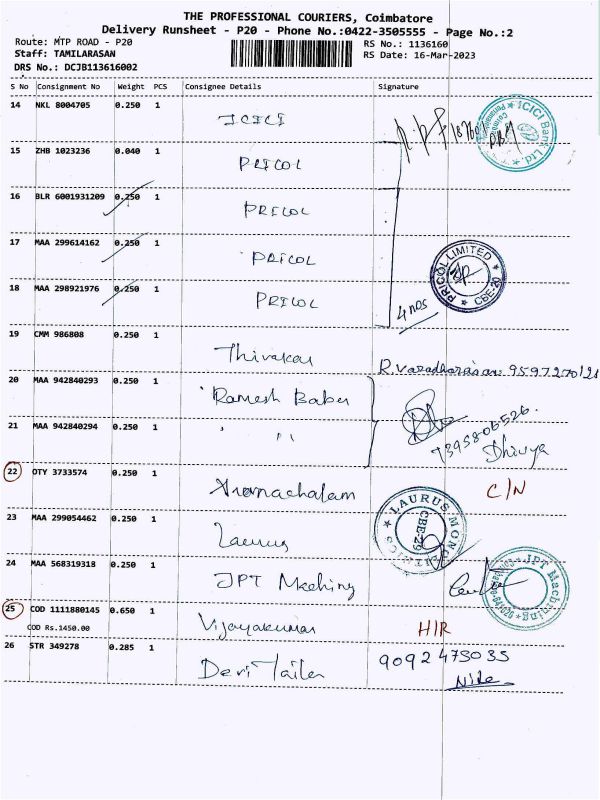 THE PROFESSIONAL COURIERS, Coimbatore
Delivery Runsheet - P20 - Phone No.:0422-3505555 - Page No.:2
Route: MTP ROAD - P20 RS No.: 1136160
Staff: TAMILARASAN RS Date: 16-Mar-2023
DRS No.: DCJB113616002
S No Consignment No Weight PCS Consignee Details Signature
14 NKL 8004705 0.250 1 ICICI ICICI Bank Ltd
15 ZHB 1023236 0.040 1 PRICOL
16 BLR 6001931209 0.250 1 PRICOL
17 MAA 299614162 0.250 1 PRICOL PRICOL LIMITED CBE-20
18 MAA 298921976 0.250 1 PRICOL 4 nos
19 CMM 986808 0.250 1 Thivakar R.Varadharasan 9597270121
20 MAA 942840293 0.250 1 Ramesh Babu
21 MAA 942840294 0.250 1 " 7395806526. Dhivya
22 OTY 3733574 0.250 1 Arunachalam C/N
23 MAA 299054462 0.250 1 Laurus LAURUS CBE-29
24 MAA 568319318 0.250 1 JPT Meching JPT Machining
25 COD 1111880145 0.650 1 Vijayakumar H/R
COD Rs.1450.00
26 STR 349278 0.285 1 Devi Tailer 9092475035